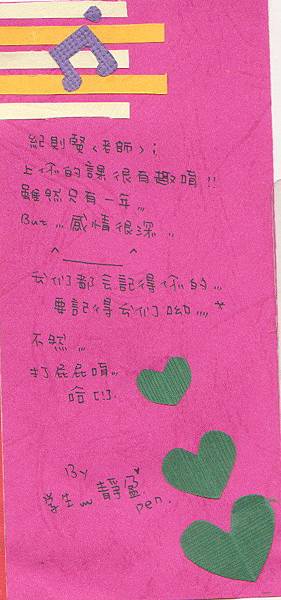 紀則賢<老師>:
上你的課很有趣唷!!
雖然只有一年...
But...感情很深..
^_____^
我们都会記得你的...
要記得我们呦....*
不然...
打屁屁唷..
哈!!
By
學生~靜盈
pen.